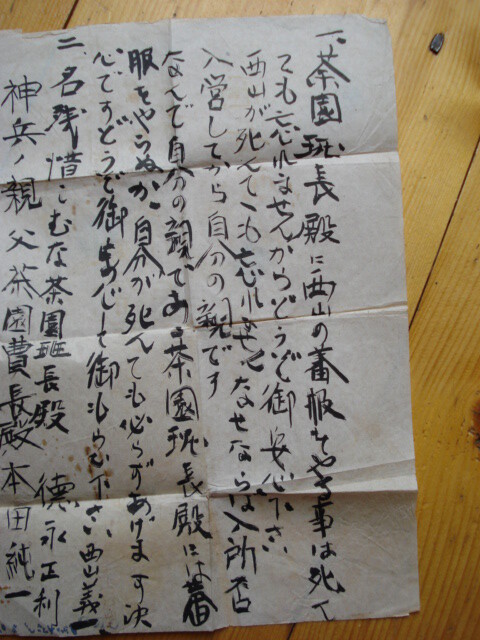 一、茶園班長殿に西山の蕃服をやる事は死んで
ても忘れませんからどうぞ御安心下さい
西山が死んでも忘れませんなせならば入所否
入営してから自分の親です
なんで自分の親である茶園班長殿には蕃
服をやらぬか自分が死んでも必らずあげます決
心ですどうで御安心して御もらひ下さい西山義一
二、名残惜しむな茶園班長殿 徳永正利
神兵ノ親父茶園費長殿本田純一